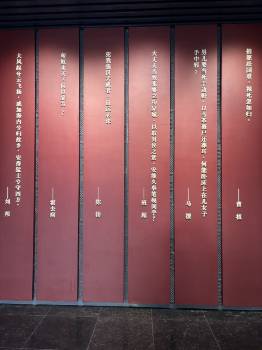 捐躯赴国难，视死忽如归。
——曹植
男儿要当死于边野，以马革裹尸还葬耳，何能卧床上在儿女子
手中邪？
——马援
大丈夫当效张骞立功异域，以取封侯之赏，安能久事笔砚间乎？
——班超
犯我强汉者，虽远必诛
——陈汤
匈奴未灭，何以家为？
——霍去病
大风起兮云飞扬，威加海内兮归故乡，安得猛士兮守四方。
——刘邦